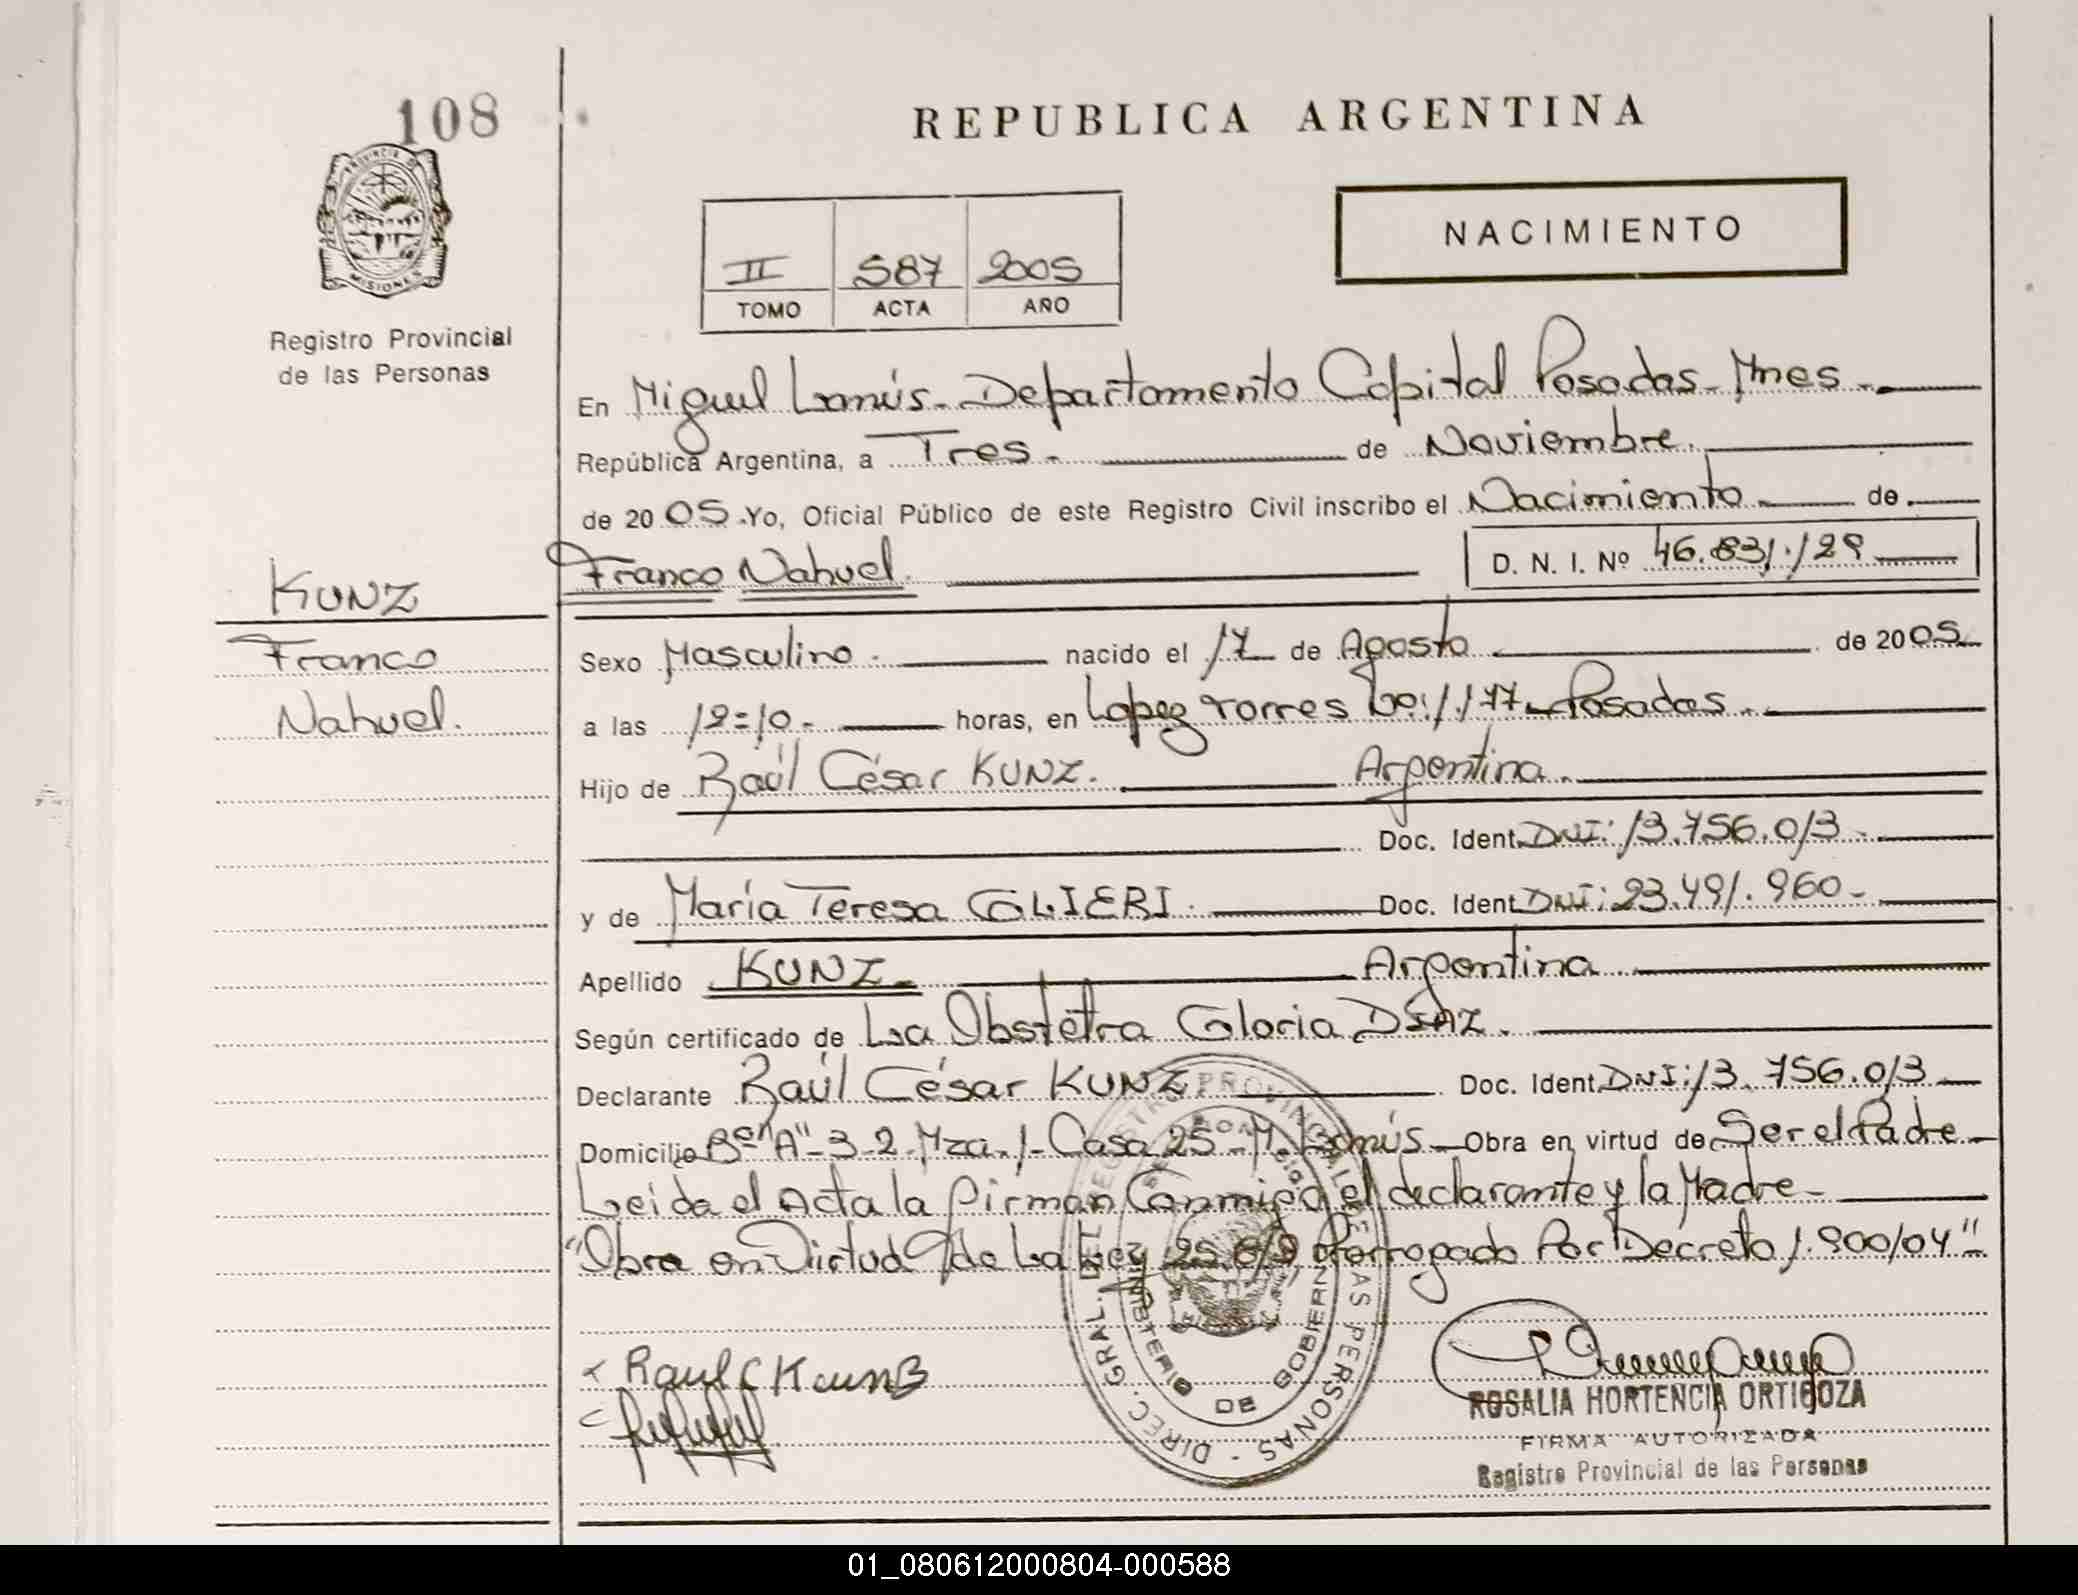 108
PROVINCIA DE
MISIONES
Registro Provincial
de las Personas
REPUBLICA ARGENTINA
NACIMIENTO
II 587 2005
TOMO ACTA AÑO
En Miguel Lanús - Departamento Capital Posadas - Mnes -
República Argentina, a Tres - de Noviembre.
de 2005 Yo, Oficial Público de este Registro Civil inscribo el Nacimiento de
Franco Nahuel. D. N. I. Nº 46.831.129
KUNZ
Franco
Nahuel.
Sexo Masculino. nacido el 17 de Agosto de 2005
a las 12=10 - horas, en Lopez Torres 1.177 - Posadas.
Hijo de Raúl César KUNZ. Argentina.
Doc. Ident. DNI: 13.756.013 -
y de María Teresa GLIERI. Doc. Ident. DNI: 23.491.960 -
Apellido KUNZ Argentina
Según certificado de La Obstétra Gloria DÍAZ.
Declarante Raúl César KUNZ Doc. Ident. DNI: 13.756.013
Domicilio Bº "A" - 3-2 - Mza. 1 - Casa 25 - M. Lanús - Obra en virtud de Ser el Padre -
Leida el Acta la firman Conmigo el declarante y la Madre -
"Obra en Virtud de la Ley 25.819 Prorrogado Por Decreto 1.900/04"
DIREC. GRAL. DEL REGISTRO PROVINCIAL DE LAS PERSONAS -
MINISTERIO DE GOBIERNO
x Raul C Kunz
ROSALIA HORTENCIA ORTIGOZA
FIRMA AUTORIZADA
Registro Provincial de las Personas
01_080612000804-000588